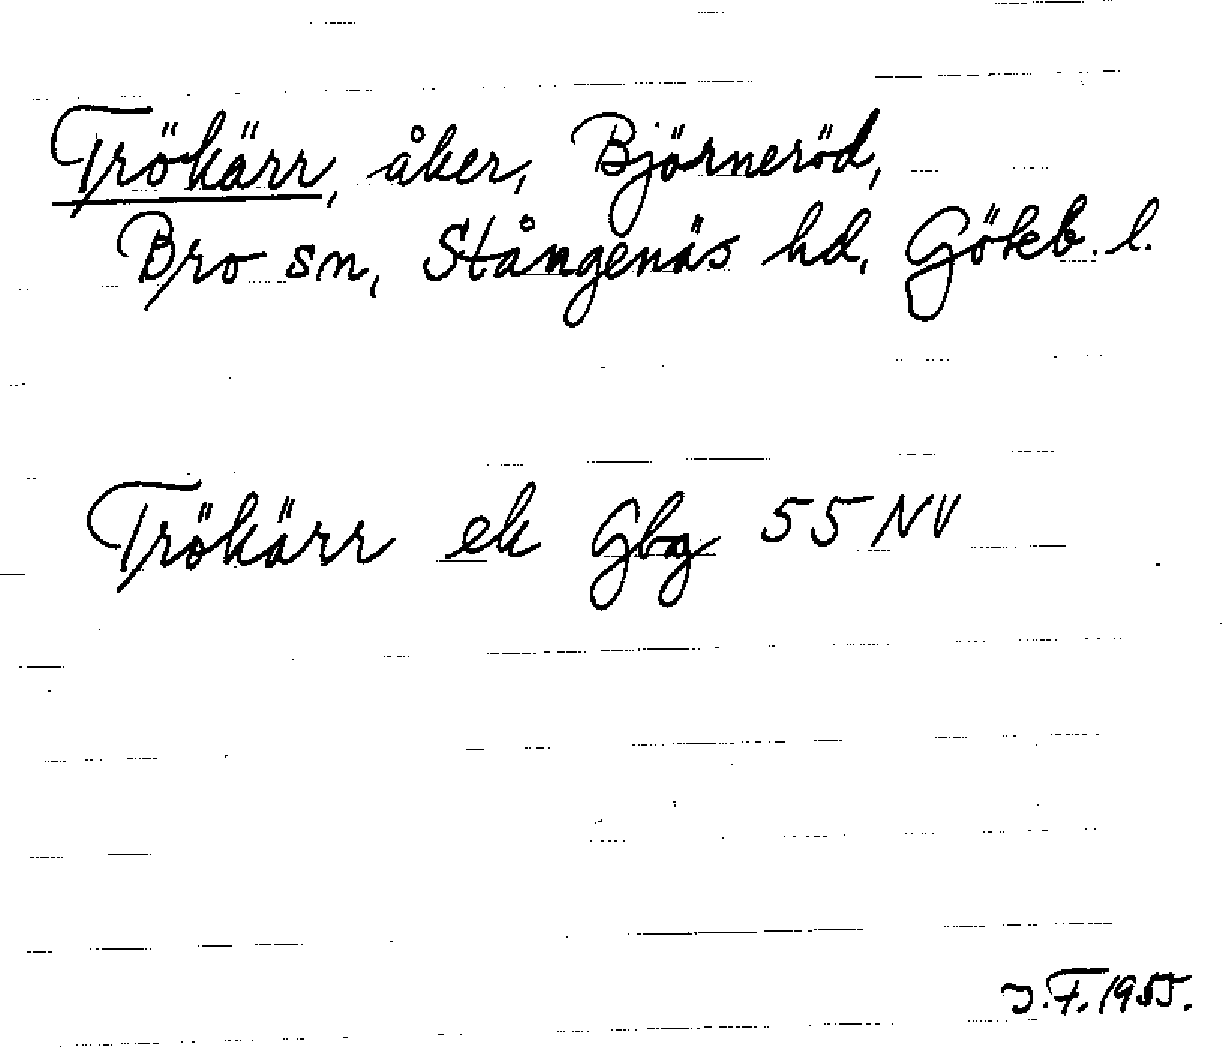 Trökärr, åker, Björneröd,
Bro sn, Stångenäs hd, Gökb. l.
Trökärr ek Gbg 55 NV
J.F. 1955.